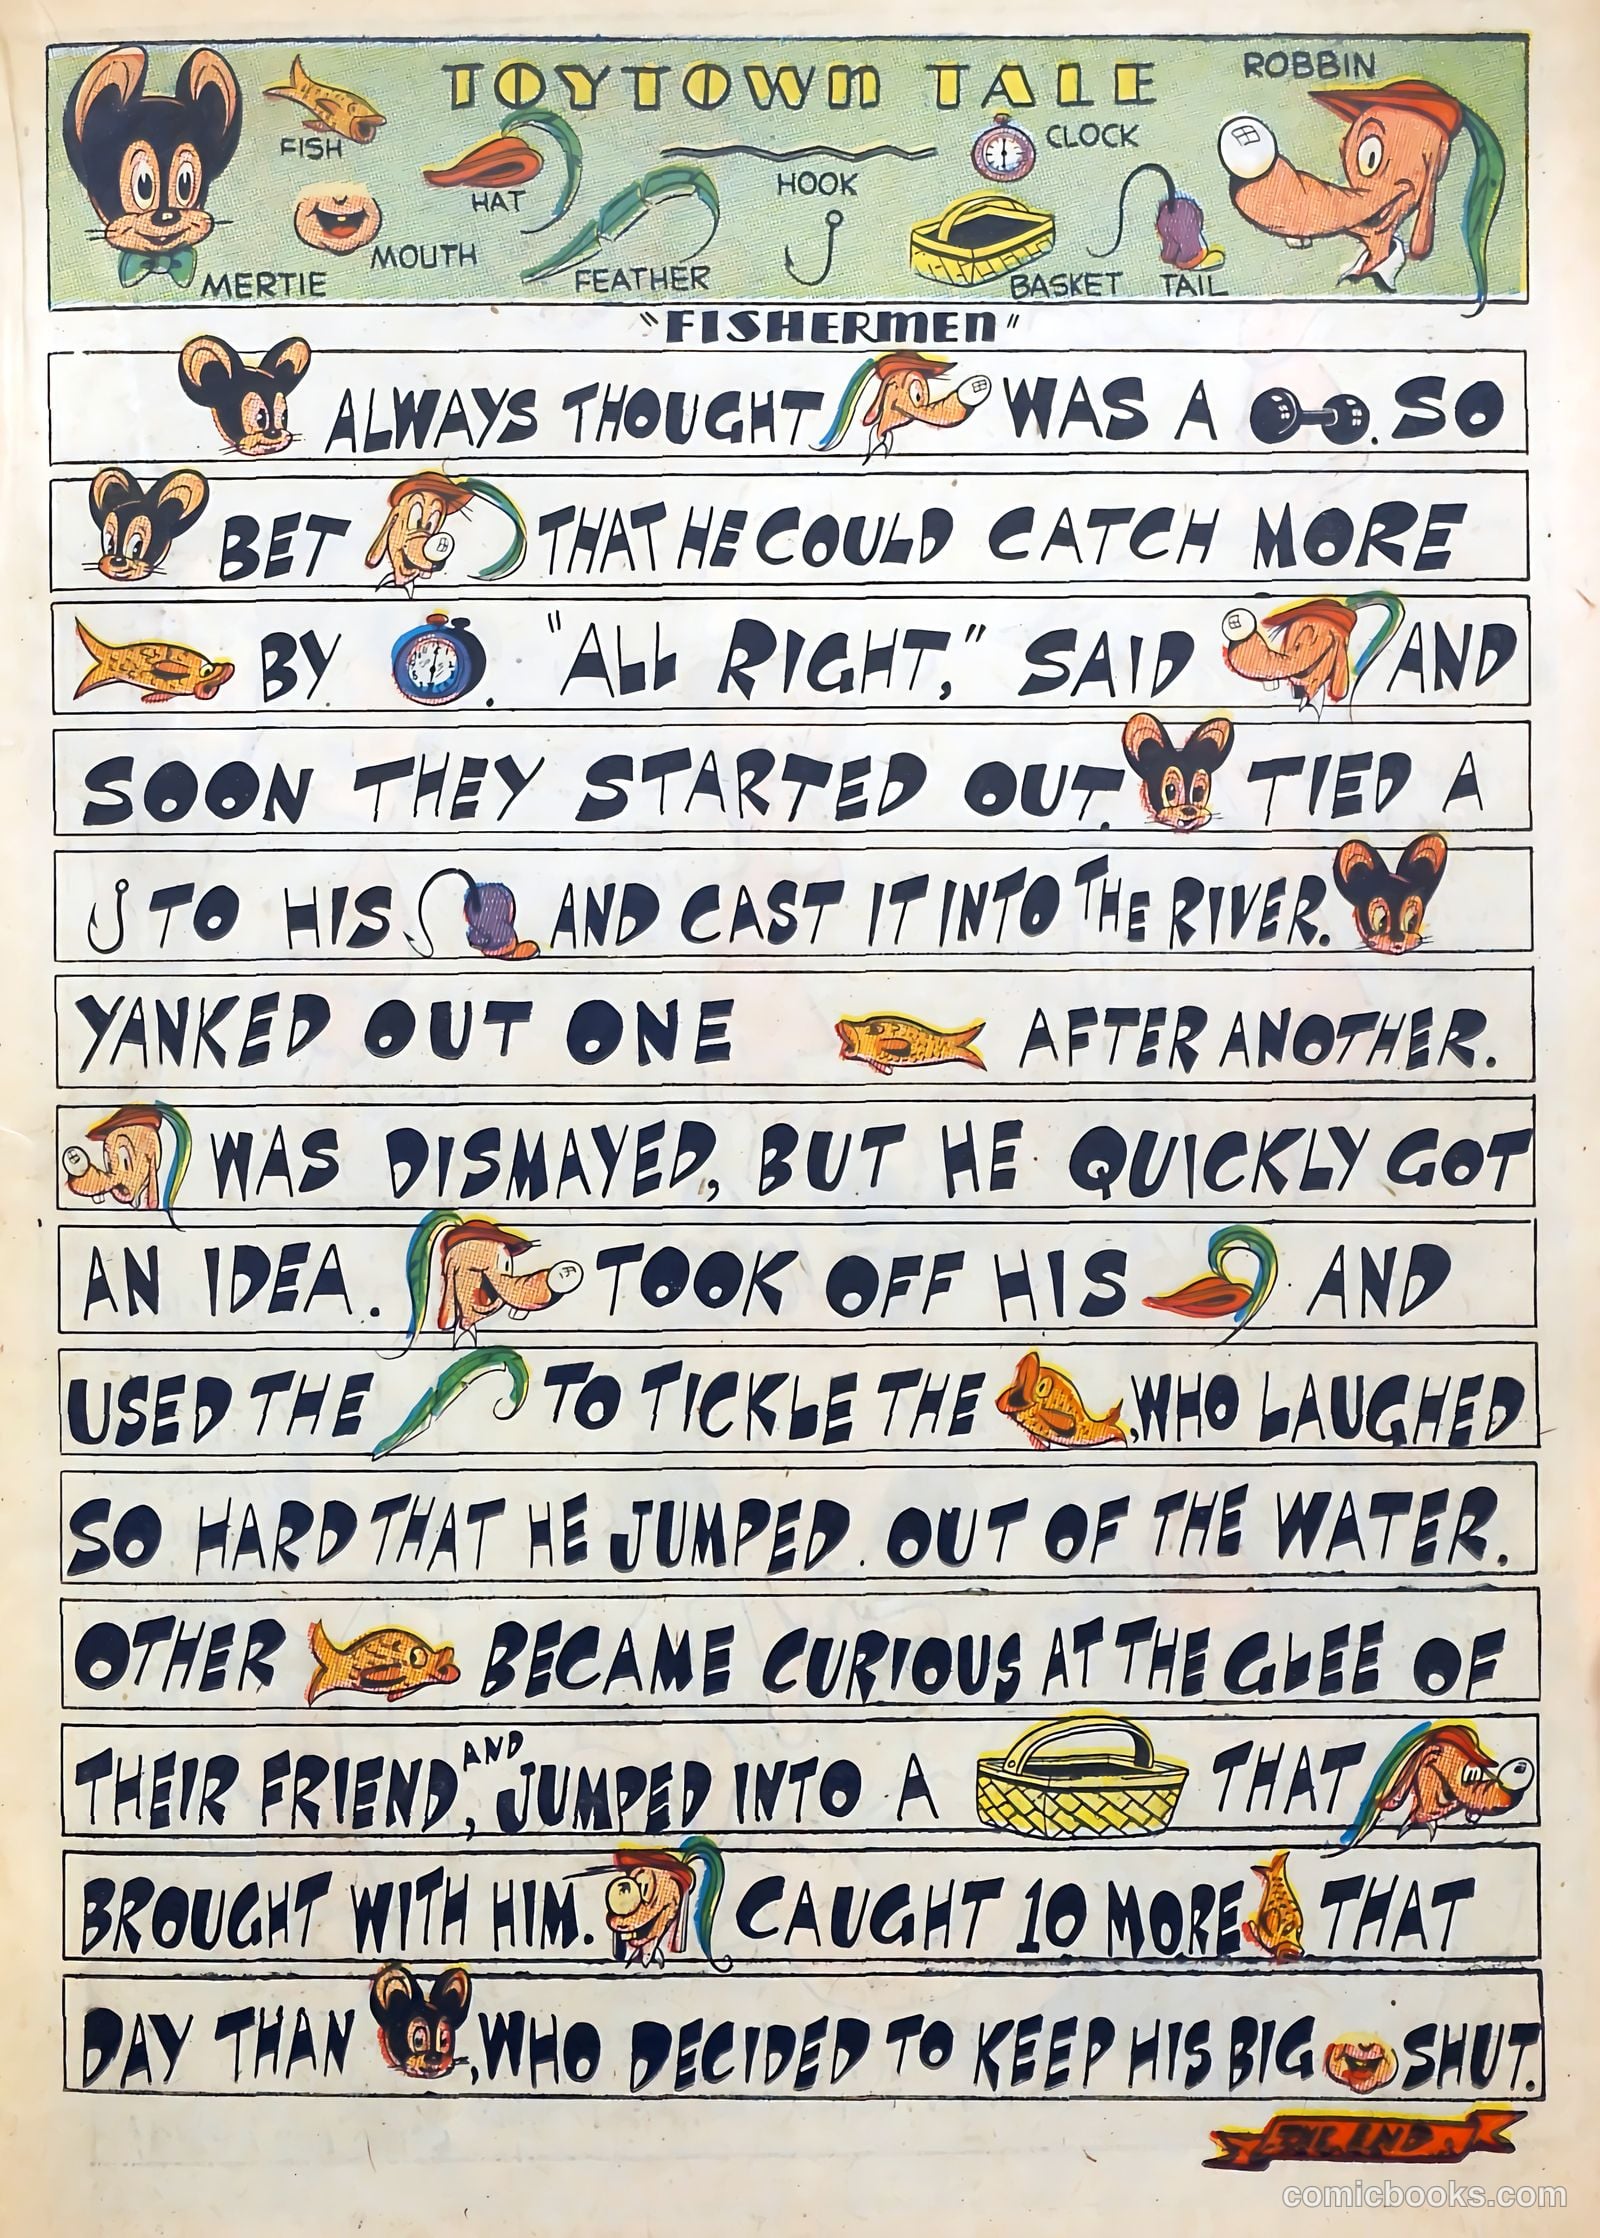 TOYTOWN TALE
ROBBIN
FISH
CLOCK
HAT
HOOK
MOUTH
MERTIE
FEATHER
BASKET
TAIL
"FISHERMEN"
ALWAYS THOUGHT WAS A . SO
BET THAT HE COULD CATCH MORE
BY . "ALL RIGHT," SAID AND
SOON THEY STARTED OUT. TIED A
TO HIS AND CAST IT INTO THE RIVER.
YANKED OUT ONE AFTER ANOTHER.
WAS DISMAYED, BUT HE QUICKLY GOT
AN IDEA. TOOK OFF HIS AND
USED THE TO TICKLE THE , WHO LAUGHED
SO HARD THAT HE JUMPED OUT OF THE WATER.
OTHER BECAME CURIOUS AT THE GLEE OF
THEIR FRIEND, AND JUMPED INTO A THAT
BROUGHT WITH HIM. CAUGHT 10 MORE THAT
DAY THAN , WHO DECIDED TO KEEP HIS BIG SHUT.
THE END
comicbooks.com